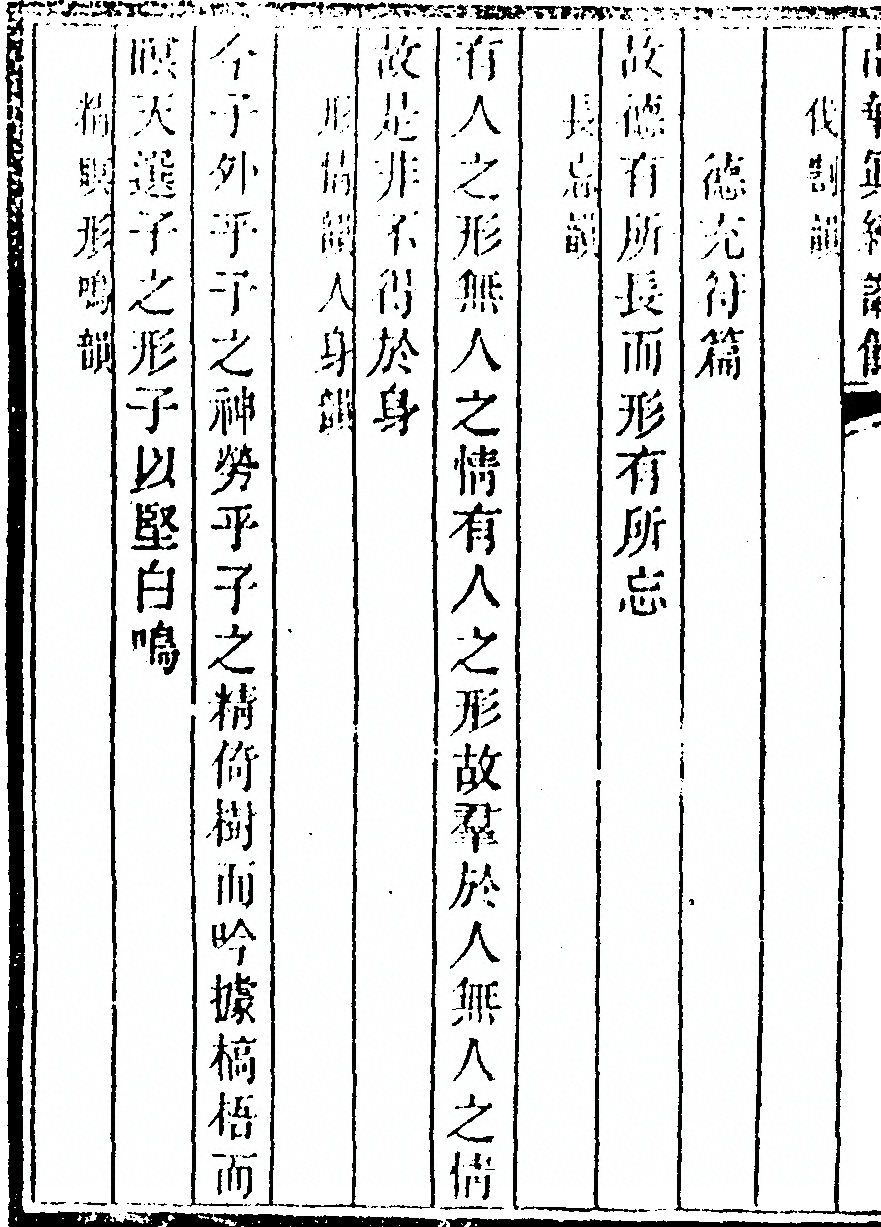 南華眞經識餘
伐割韻
德充符篇
故德有所長而形有所忘
長忘韻
有人之形無人之情有人之形故羣於人無人之情
故是非不得於身
形情韻人身韻
今子外乎子之神勞乎子之精倚樹而吟據槁梧而
瞑天選子之形子以堅白鳴
精瞑形鳴韻